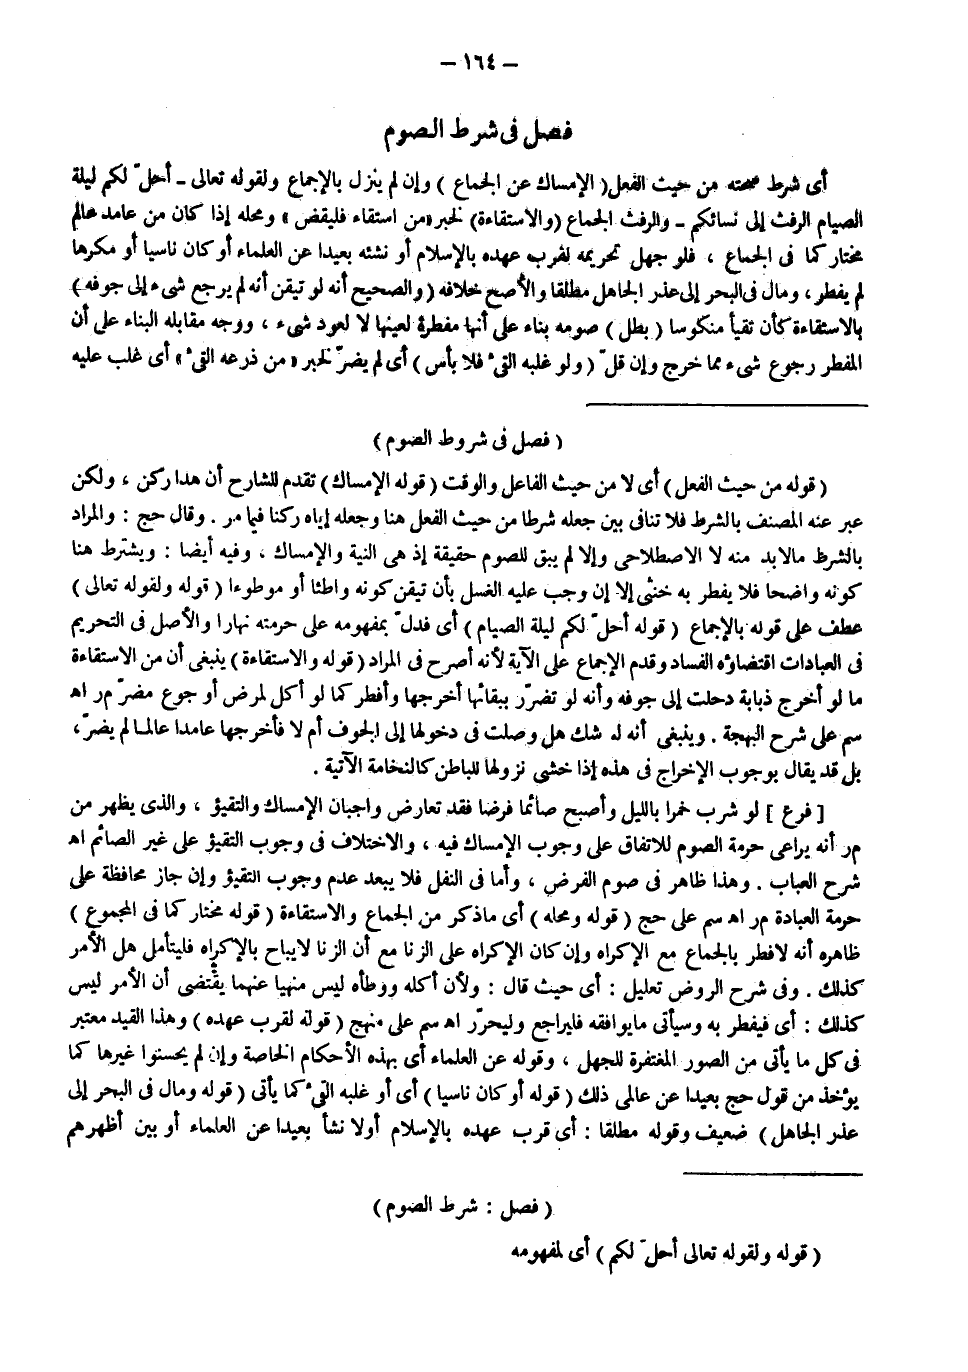 – ١٦٤ –
فصل فى شرط الصوم
أى شرط صحته من حيث الفعل ( الإمساك عن الجماع ) وإن لم ينزل بالإجماع ولقوله تعالى ـ أحلّ لكم ليلة
الصيام الرفث إلى نسائكم ـ والرفث الجماع ( والاستقاءة ) لخبر « من استقاء فليقض » ومحله إذا كان من عامد عالم
مختار كما فى الجماع ، فلو جهل تحريمه لقرب عهده بالإسلام أو نشئه بعيدا عن العلماء أو كان ناسيا أو مكرها
لم يفطر ، ومال فى البحر إلى عذر الجاهل مطلقا والأصح خلافه ( والصحيح أنه لو تيقن أنه لم يرجع شىء إلى جوفه )
بالاستقاءة كأن تقيأ منكوسا ( بطل ) صومه بناء على أنها مفطرة لعينها لا لعود شىء ، ووجه مقابله البناء على أن
المفطر رجوع شىء مما خرج وإن قلّ ( ولو غلبه القىء فلا بأس ) أى لم يضرّ لخبر « من ذرعه القىء » أى غلب عليه
( فصل فى شروط الصوم )
( قوله من حيث الفعل ) أى لا من حيث الفاعل والوقت ( قوله الإمساك ) تقدم للشارح أن هذا ركن ، ولكن
عبر عنه المصنف بالشرط فلا تنافى بين جعله شرطا من حيث الفعل هنا وجعله إياه ركنا فيما مر . وقال حج : والمراد
بالشرط مالابد منه لا الاصطلاحى وإلا لم يبق للصوم حقيقة إذ هى النية والإمساك ، وفيه أيضا : ويشترط هنا
كونه واضحا فلا يفطر به خنثى إلا إن وجب عليه الغسل بأن تيقن كونه واطئا أو موطوءا ( قوله ولقوله تعالى )
عطف على قوله بالإجماع ( قوله أحلّ لكم ليلة الصيام ) أى فدلّ بمفهومه على حرمته نهارا والأصل فى التحريم
فى العبادات اقتضاؤه الفساد وقدم الإجماع على الآية لأنه أصرح فى المراد ( قوله والاستقاءة ) ينبغى أن من الاستقاءة
ما لو أخرج ذبابة دخلت إلى جوفه وأنه لو تضرّر ببقائها أخرجها وأفطر كما لو أكل لمرض أو جوع مضرّ م ر اه
سم على شرح البهجة . وينبغى أنه لو شك هل وصلت فى دخولها إلى الجوف أم لا فأخرجها عامدا عالما لم يضرّ ،
بل قد يقال بوجوب الإخراج فى هذه إذا خشى نزولها للباطن كالنخامة الآتية .
[ فرع ] لو شرب خمرا بالليل وأصبح صائما فرضا فقد تعارض واجبان الإمساك والتقيؤ ، والذى يظهر من
م ر أنه يراعى حرمة الصوم للاتفاق على وجوب الإمساك فيه ، والاختلاف فى وجوب التقيؤ على غير الصائم اه
شرح العباب . وهذا ظاهر فى صوم الفرض ، وأما فى النفل فلا يبعد عدم وجوب التقيؤ وإن جاز محافظة على
حرمة العبادة م ر اه سم على حج ( قوله ومحله ) أى ماذكر من الجماع والاستقاءة ( قوله مختار كما فى المجموع )
ظاهره أنه لافطر بالجماع مع الإكراه وإن كان الإكراه على الزنا مع أن الزنا لايباح بالإكراه فليتأمل هل الأمر
كذلك . وفى شرح الروض تعليل : أى حيث قال : ولأن أكله ووطأه ليس منهيا عنهما يقتضى أن الأمر ليس
كذلك : أى فيفطر به وسيأتى مايوافقه فليراجع وليحرّر اه سم على منهج ( قوله لقرب عهده ) وهذا القيد معتبر
فى كل ما يأتى من الصور المغتفرة للجهل ، وقوله عن العلماء أى بهذه الأحكام الخاصة وإن لم يحسنوا غيرها كما
يؤخذ من قول حج بعيدا عن عالمى ذلك ( قوله أو كان ناسيا ) أى أو غلبه القىء كما يأتى ( قوله ومال فى البحر إلى
عذر الجاهل ) ضعيف وقوله مطلقا : أى قرب عهده بالإسلام أولا نشأ بعيدا عن العلماء أو بين أظهرهم
( فصل : شرط الصوم )
( قوله ولقوله تعالى أحلّ لكم ) أى لمفهومه